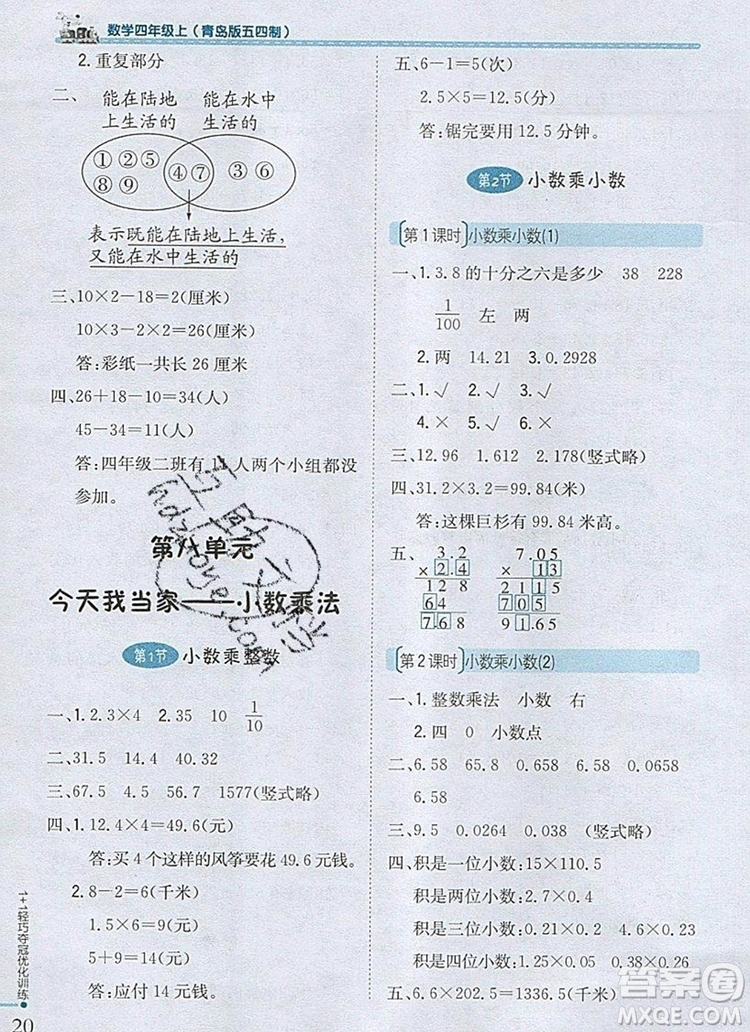 数学四年级上(青岛版五四制)
2.重复部分
二、
能在陆地 能在水中
上生活的 生活的
①②⑤ ④⑦ ③⑥
⑧⑨
表示既能在陆地上生活,
又能在水中生活的
三、10×2-18=2(厘米)
10×3-2×2=26(厘米)
答:彩纸一共长 26 厘米
四、26+18-10=34(人)
45-34=11(人)
答:四年级二班有 11 人两个小组都没
参加。
第八单元
今天我当家——小数乘法
第1节 小数乘整数
一、1.2.3×4 2.35 10 1/10
二、31.5 14.4 40.32
三、67.5 4.53 56.7 1577(竖式略)
四、1.12.4×4=49.6(元)
答:买 4 个这样的风筝要花 49.6 元钱。
2.8-2=6(千米)
1.5×6=9(元)
5+9=14(元)
答:应付 14 元钱。
五、6-1=5(次)
2.5×5=12.5(分)
答:锯完要用 12.5 分钟。
第2节 小数乘小数
第 1 课时 小数乘小数(1)
一、1.3.8 的十分之六是多少 38 228
1/100 左 两
2.两 14.21 3.0.2928
二、1.√ 2.√ 3.√
4.× 5.√ 6.×
三、12.96 1.612 2.178(竖式略)
四、31.2×3.2=99.84(米)
答:这棵巨杉有 99.84 米高。
五、 3.2 7.05
× 2.4 × 13
1 2 8 2 1 1 5
6 4 7 0 5
7.6 8 9 1.6 5
第 2 课时 小数乘小数(2)
一、1.整数乘法 小数 右
2.四 0 小数点
二、6.58 65.8 0.658 0.0658
6.58
三、9.5 0.0264 0.038 (竖式略)
四、积是一位小数:15×110.5
积是两位小数:2.7×0.4
积是三位小数:0.12×0.3 6.6×0.26
积是四位小数:0.72×0.03
五、6.6×202.5=1336.5(千米)
1+1轻巧夺冠优化训练
20
hdzuoye.com
答案圈
MXQE.COM